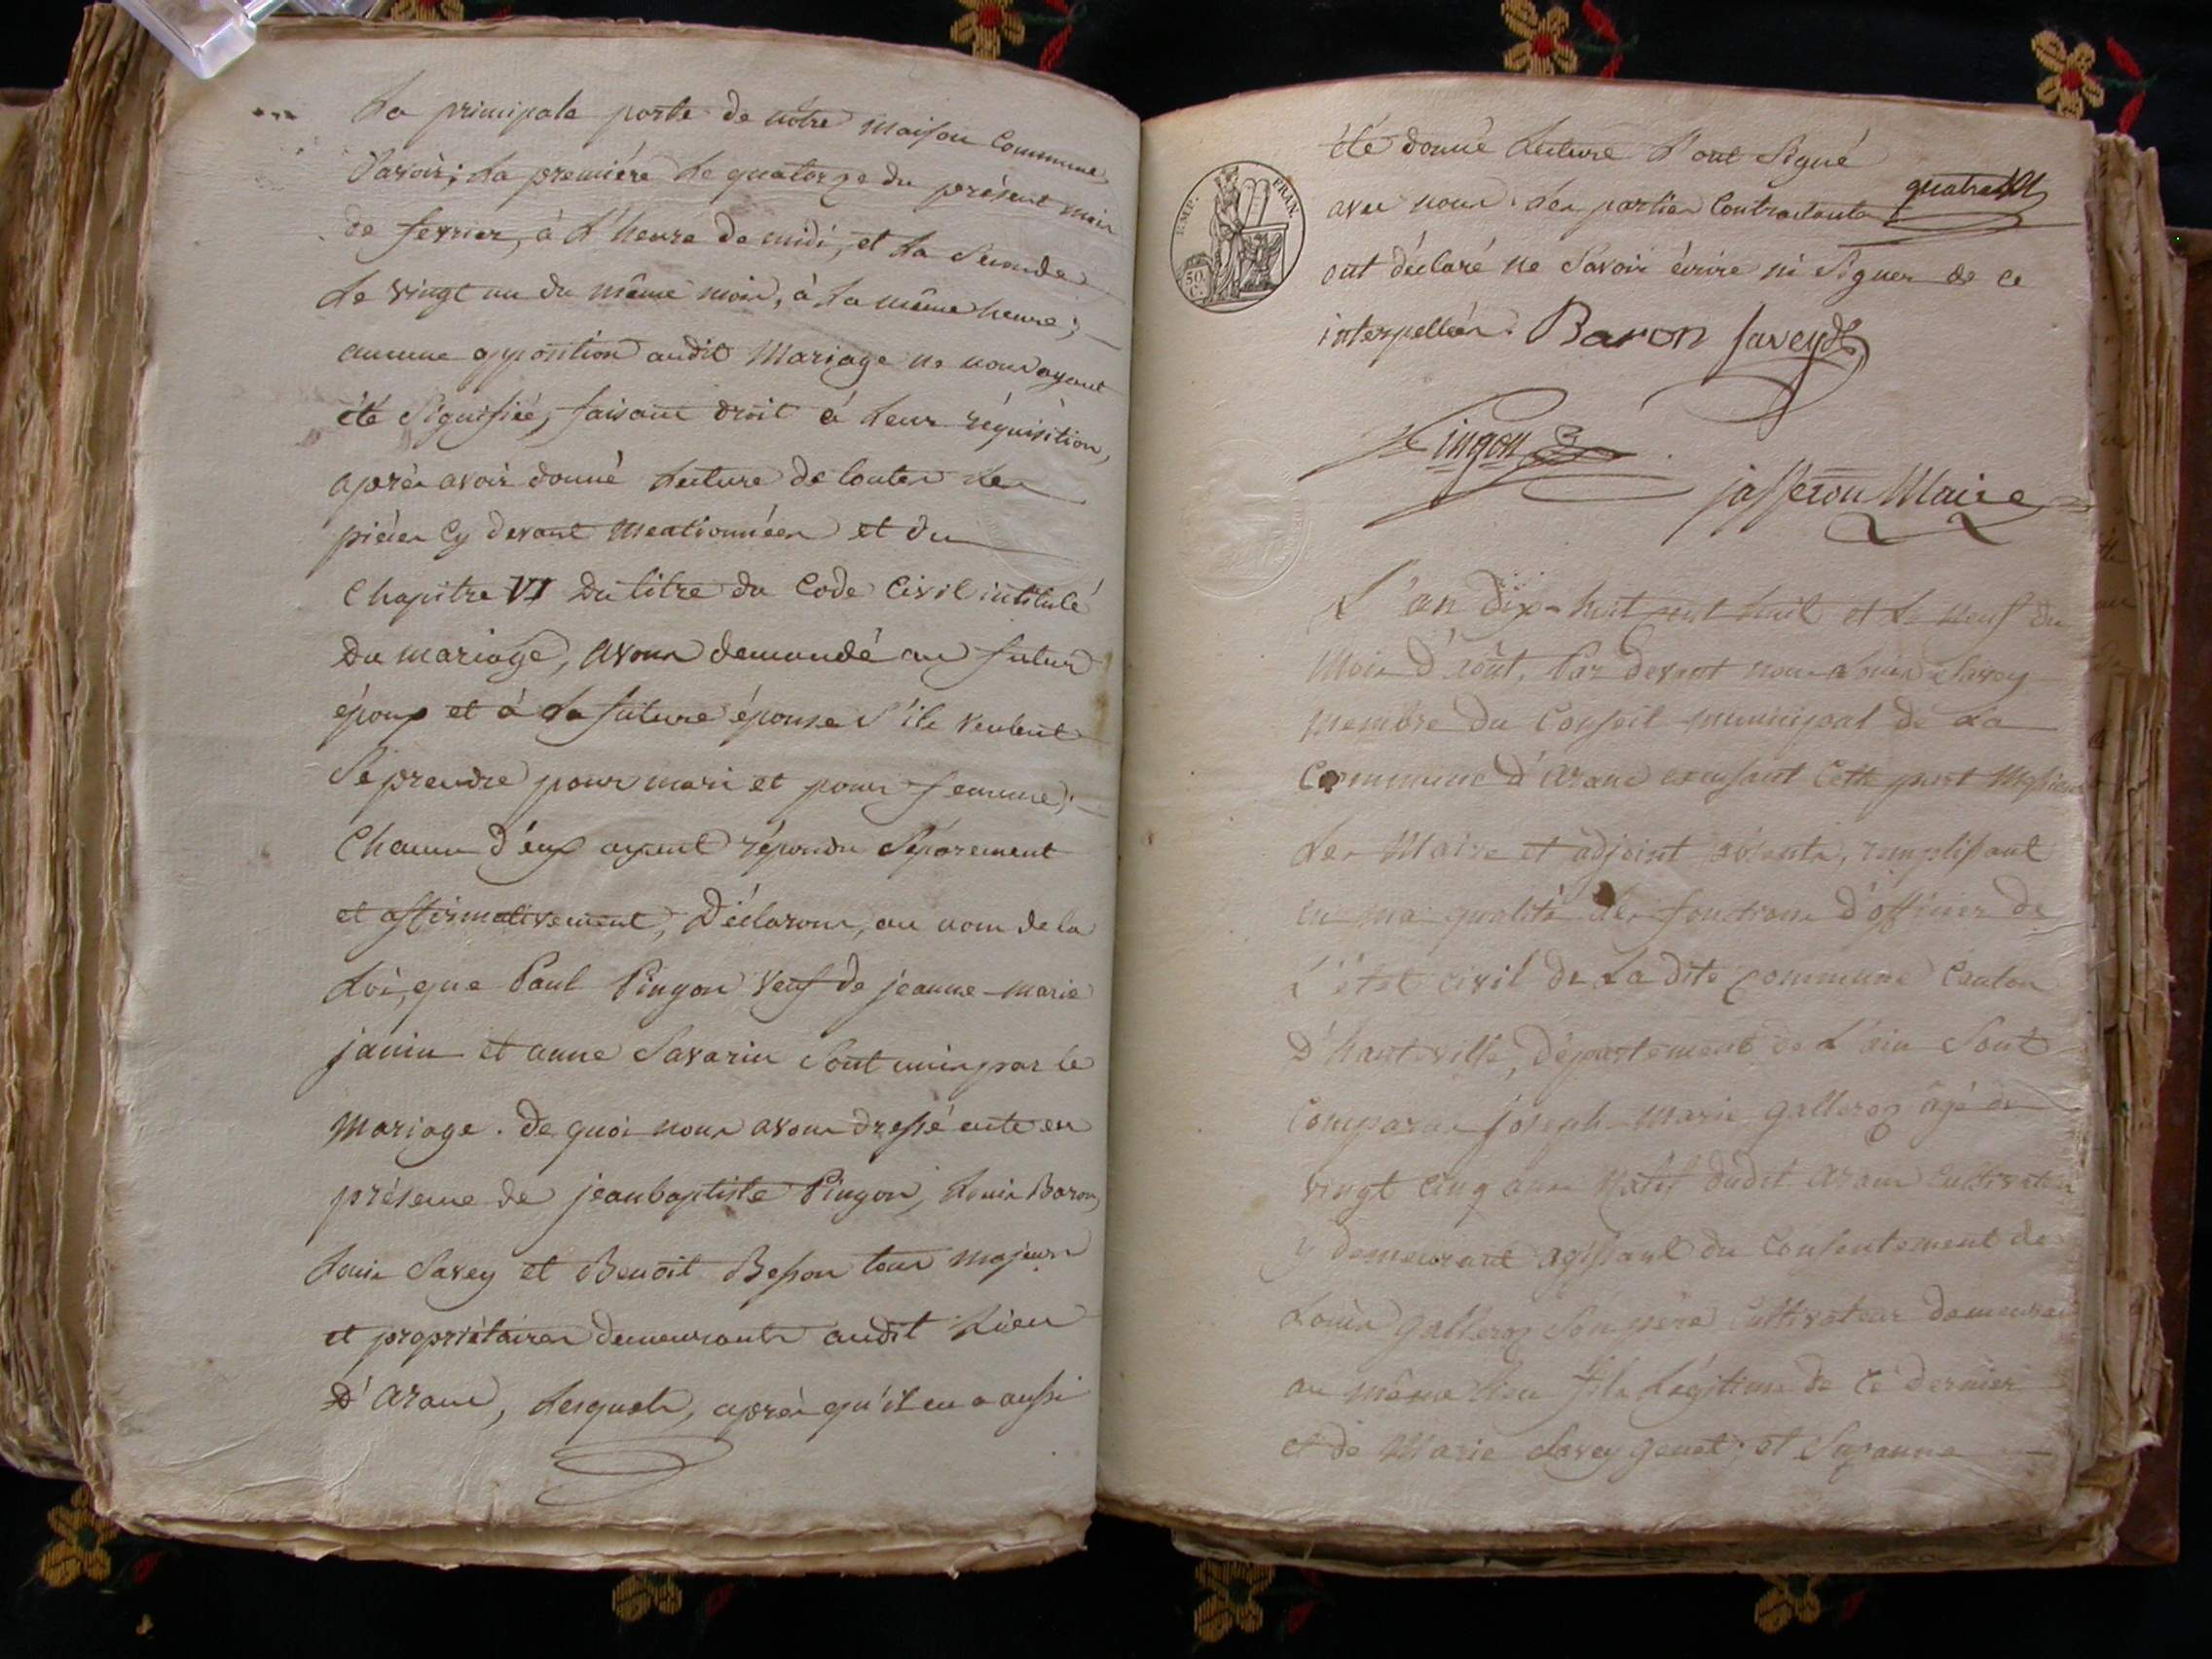 La principale porte de notre maison Commune
Savoir; la première le quatorze du présent mois
de fevrier, à L'heure de midi, et la Seconde
Le vingt un du même mois, à la même heure;
aucune opposition audit Mariage ne nous ayant
été Signifiée, faisant droit à leur réquisition,
après avoir donné Lecture de toutes les
pièces cy devant Mentionnées et du
Chapitre VI du titre du Code Civil intitulé
du mariage, avons demandé au futur
époux et à la future épouse s'ils veulent
Se prendre pour mari et pour femme;
Chacun d'eux ayant répondu Séparement
et affirmativement, Déclarons, au nom de la
Loi, que Paul Pingon Veuf de jeanne-marie
janin et anne Savarin Sont unis par le
Mariage. de quoi nous avons dressé acte en
présence de jeanbaptiste Pingon, Louis Baron,
Louis Savey et Benoit Besson tous majeurs
et propriétaires demeurants audit Lieu
D'aranc, Lesquels, après qu'il en a aussi
EMP. FRAN.
50 C.
été donné Lecture L'ont Signé
avec nous. Les parties Contractantes
ont déclaré ne Savoir écrire ni Signer de ce
interpellées. Baron Savey
Pingon
jasseron Maire
L'an dix-huit cent huit et le neuf du
Mois D'août, Par devant nous Louis Savey
membre du Conseil municipal de La
Commune d'aranc Cette part Messieurs
Les Maire et adjoint absents, remplissant
en ma qualité les fonctions d'officier de
L'état civil de La dite Commune Canton
D'hauteville, Département de L'ain Sont
Comparus joseph-Marie galleroz âgé de
vingt cinq ans Natif dudit aranc Cultivateur
y demeurant agissant du Consentement de
Louis galleroz Son père Cultivateur demeurant
au même lieu fils Légitime de ce dernier
et de Marie Savey genet; et Suzanne